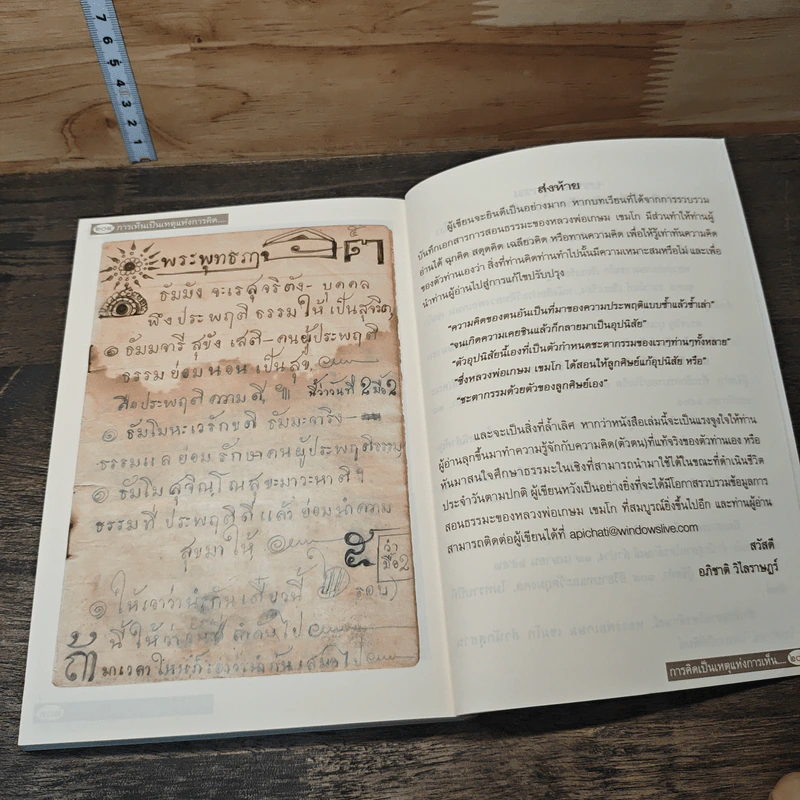 7 6 5 4 3 2 1
การเห็นเป็นเหตุแห่งการคิด...
พระพุทธภา
ธัมมัง จะเร สุจริตัง - บุคคล
พึงประพฤติ ธรรมให้ เป็นสุจริต
๑ ธัมมจารี สุขัง เสติ - คนผู้ประพฤติ
ธรรม ย่อม นอน เป็น สุข.
คือประพฤติ ความดี. นี้ว่าวันที่ 2 มื้อ 2
๑ ธัมโม หะเว รักขติ ธัมมะจาริง -
ธรรมแล ย่อม รักษา คนผู้ประพฤติธรรม
๑ ธัมโม สุจิณฺโณ สุขะมาวะหาติฯ
ธรรมที่ ประพฤติดี แล้ว ย่อม นำความ
สุขมาให้
๕ ว่า มื้อ 2
๑ ให้เอาว่านำกันเดี๋ยวนี้ รอบ)
นี้ ให้ว่า ลำดับไป
ถ้า
ส่งท้าย
ผู้เขียนจะยินดีเป็นอย่างมาก หากบทเรียนที่ได้จากการรวบรวม
บันทึกเอกสารการสอนธรรมะของหลวงพ่อเกษม เขมโก มีส่วนทำให้ท่านผู้
อ่านได้ ฉุกคิด สดุดคิด เฉลียวคิด หรือทานความคิด เพื่อให้รู้เท่าทันความคิด
ของตัวท่านเองว่า สิ่งที่ท่านคิดท่านทำไปนั้นมีความเหมาะสมหรือไม่ และเพื่อ
นำท่านผู้อ่านไปสู่การแก้ไขปรับปรุง
“ความคิดของตนอันเป็นที่มาของความประพฤติแบบซ้ำแล้วซ้ำเล่า”
“จนเกิดความเคยชินแล้วก็กลายมาเป็นอุปนิสัย”
“ตัวอุปนิสัยนี้เองที่เป็นตัวกำหนดชะตากรรมของเราๆท่านๆทั้งหลาย”
“ซึ่งหลวงพ่อเกษม เขมโก ได้สอนให้ลูกศิษย์แก้อุปนิสัย หรือ”
“ชะตากรรมด้วยตัวของลูกศิษย์เอง”
และจะเป็นสิ่งที่ล้ำเลิศ หากว่าหนังสือเล่มนี้จะเป็นแรงจูงใจให้ท่าน
ผู้อ่านลุกขึ้นมาทำความรู้จักกับความคิด(ตัวตน)ที่แท้จริงของตัวท่านเอง หรือ
หันมาสนใจศึกษาธรรมะในเชิงที่สามารถนำมาใช้ได้ในขณะที่ดำเนินชีวิต
ประจำวันตามปกติ ผู้เขียนหวังเป็นอย่างยิ่งที่จะได้มีโอกาสรวบรวมข้อมูลการ
สอนธรรมะของหลวงพ่อเกษม เขมโก ที่สมบูรณ์ยิ่งขึ้นไปอีก และท่านผู้อ่าน
สามารถติดต่อผู้เขียนได้ที่ apichati@windowslive.com
สวัสดี
อภิชาติ วิไลราษฎร์
การคิดเป็นเหตุแห่งการเห็น...